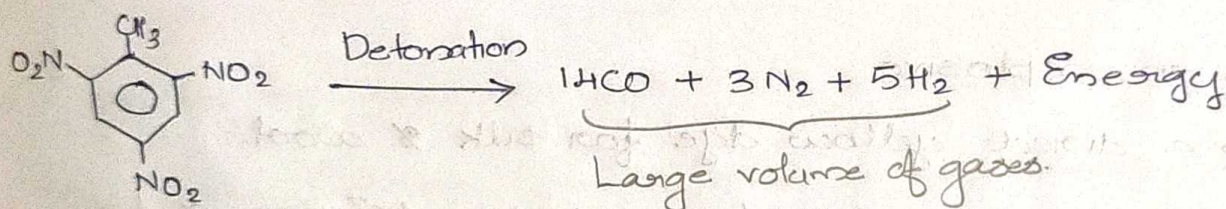 CH3
O2N
NO2
Detonation
14CO + 3N2 + 5H2 + Energy
NO2
Large volume of gases.